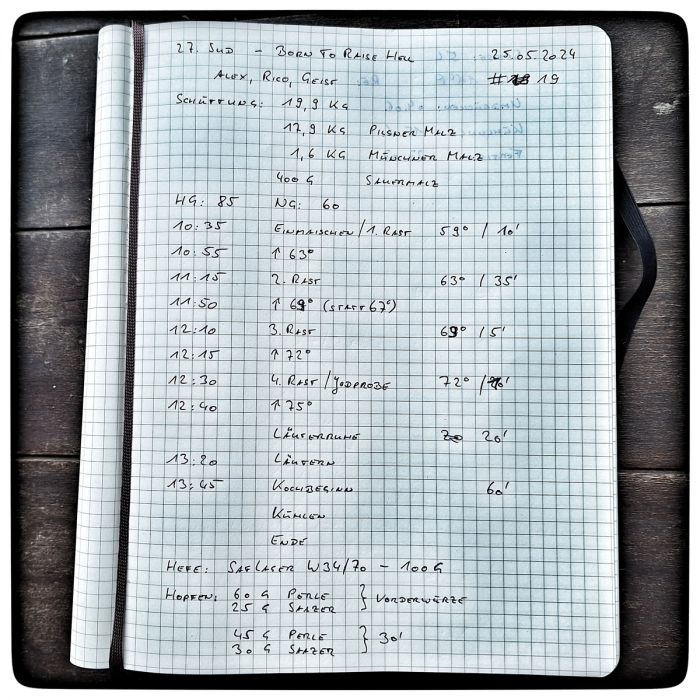 27. Sud - Born To Raise Hell 25.05.2024
Alex, Rico, Geist # 19
Schüttung: 19,9 kg
17,9 kg Pilsner Malz
1,6 kg Münchner Malz
400 g Sauermalz
HG: 85 NG: 60
10:35 Einmaischen/1. Rast 59° / 10'
10:55 ↑ 63°
11:15 2. Rast 63° / 35'
11:50 ↑ 69° (statt 67°)
12:10 3. Rast 69° / 5'
12:15 ↑ 72°
12:30 4. Rast/Jodprobe 72° / 10'
12:40 ↑ 75°
Läuterruhe 20'
13:20 Läutern
13:45 Kochbeginn 60'
Kühlen
Ende
Hefe: SafLager W34/70 - 100g
Hopfen: 60 g Perle } Vorderwürze
25 g Saazer
45 g Perle } 30'
30 g Saazer